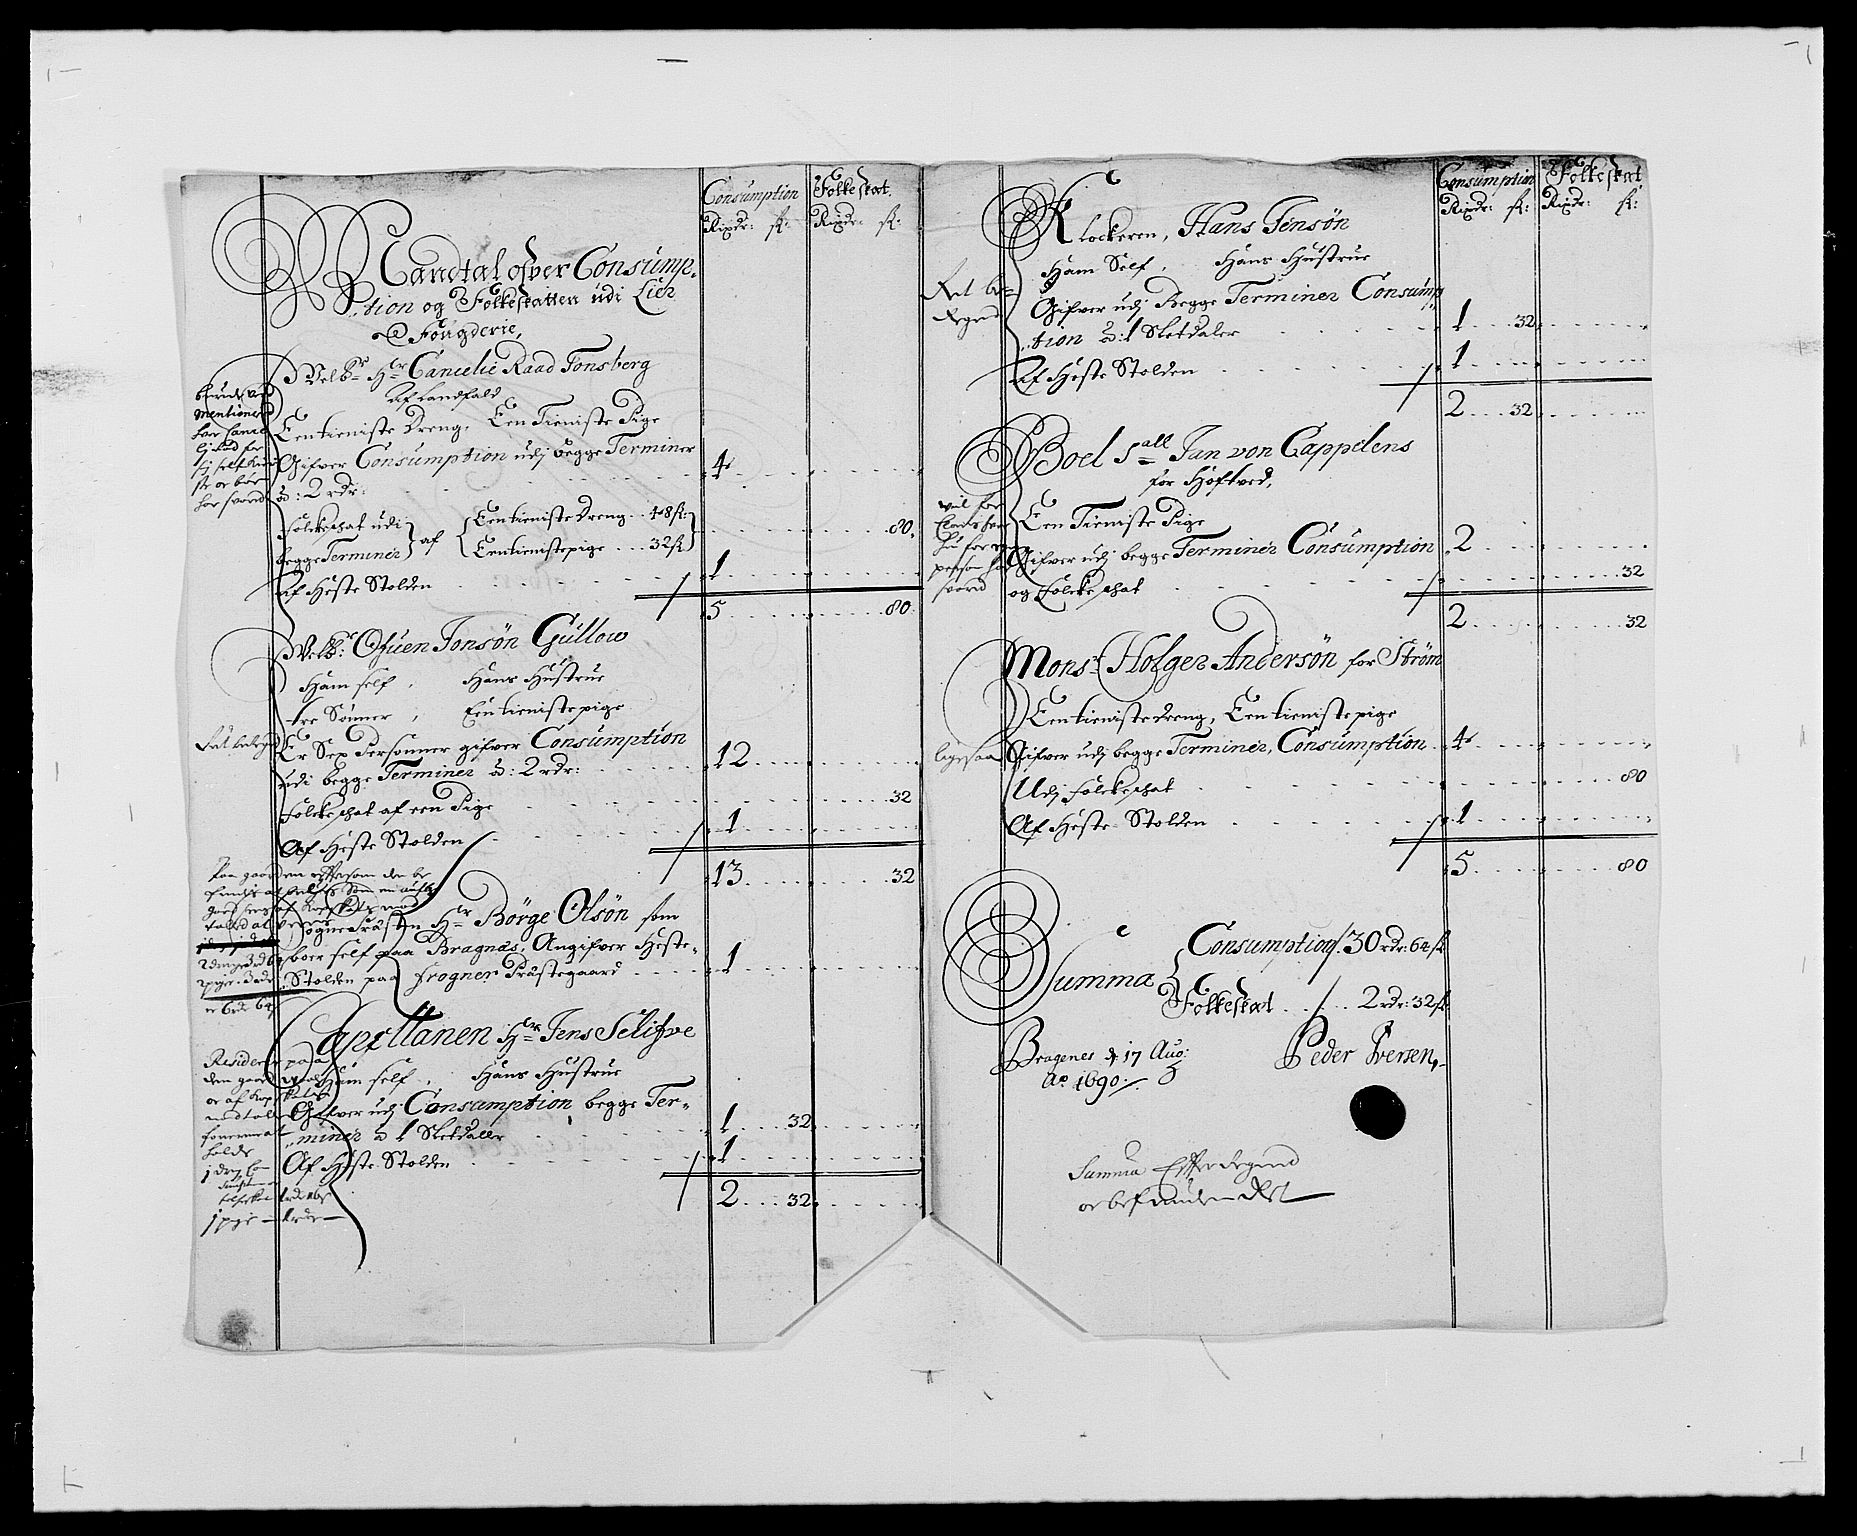 Consumption Folkeskat.
Rixdr: sk: Rixdr: sk:
Mandtal ofver Consump-
tion og Folkeskatten udi Lier
Fougderie,
Velbr Hr Cancelie Raad Tonsberg
Af Landfald
Een tieniste Dreng, Een Tieniste Pige
Gifver Consumption udj begge Terminer
â: 2 rdr: 4
Folckeschat udi
begge Terminer af
Een tieniste Dreng .. 48 sk:
Een tieniste pige .... 32 sk
80
Af Heste Stolden 1
5 80
Velb: Ofuen Jonsøn Gullow
Ham self, Hans Hustrue
tre Sønner, Een tieniste pige
Er Sex Personner gifver Consumption
udi begge Terminer â: 2 rdr: 12
Folckeschat af een Pige 32
Af Heste Stolden 1
13 32
Sogne Præsten Hr Börge Olsön som
boer self paa Bragnæs, Angifver Heste-
Stolden paa Frogner Præstegaard 1
Capellanen Hr Jens Selifve
Ham self, Hans Hustrue
Gifver udj Consumption begge Ter-
miner â 1 Sletdaller 1 32
Af Heste Stolden 1
2 32
Mentionered
Residerer paa
den gaard
holde
Consumption Folkeskat
Rixdr: sk: Rixdr: sk:
Klockeren, Hans Jensøn
Ham Self, Hans Hustrue
Ret be-
regnet
Gifver udj Begge Terminer Consump
tion â: 1 Sletdaler 1 32
Af Heste Stolden 1
2 32
Boel Sall Jan von Cappelens
for Høftved,
Een Tieniste Pige
Gifver udj begge Terminer Consumption 2
og Folckeschat 32
2 32
Monsr Holger Andersøn for Strøm
Een tieniste dreng, Een tieniste pige
ligesaa
Gifver udj begge Terminer, Consumption 4
Udj Folckeschat 80
Af Heste Stolden 1
5 80
Summa
Consumption 30 rdr: 64 sk
Folkeskat 2 rdr: 32 sk
Bragenes d: 17 Aug:
Ao 1690
Peder Iversen,
Summa Efterregnet
oc befunden Ret